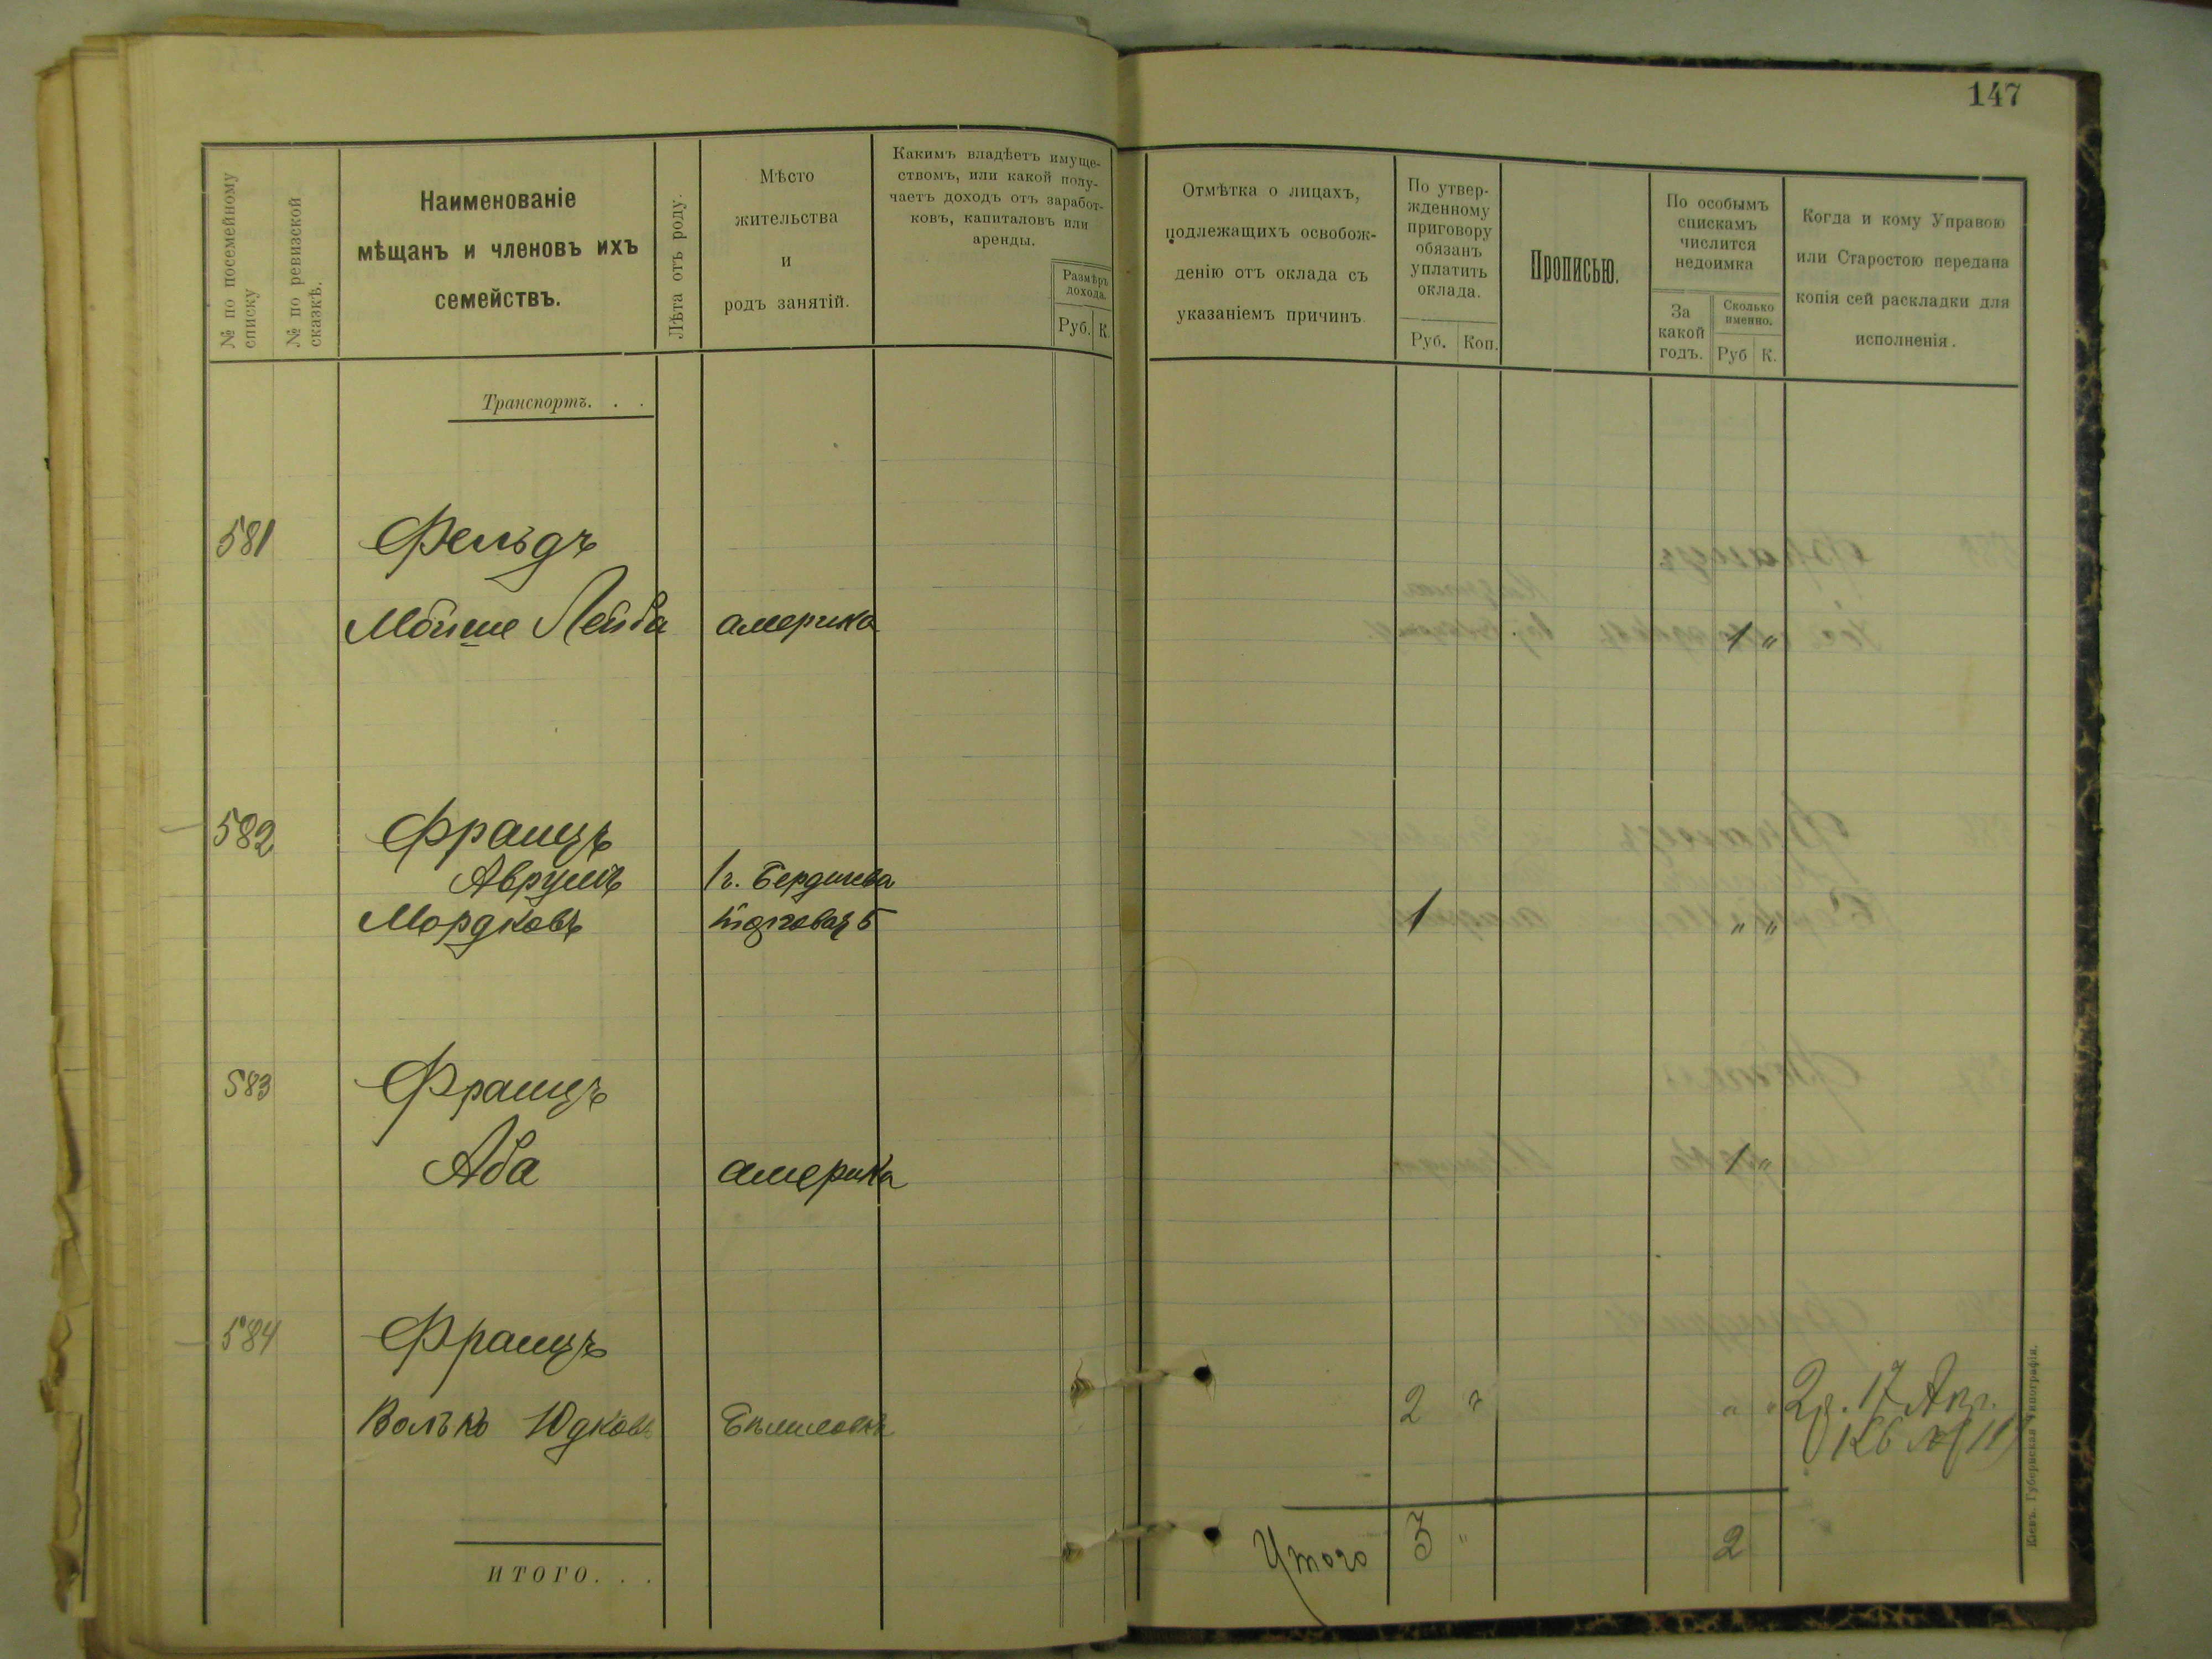 147
№ по посемейному
списку
№ по ревизской
сказкѣ.
Наименованіе
мѣщанъ и членовъ ихъ
семействъ.
Лѣта отъ роду.
Мѣсто
жительства
и
родъ занятій.
Какимъ владѣетъ имуще-
ствомъ, или какой полу-
чаетъ доходъ отъ заработ-
ковъ, капиталовъ или
аренды.
Размѣръ
дохода.
Руб. К.
Отмѣтка о лицахъ,
подлежащихъ освобож-
денію отъ оклада съ
указаніемъ причинъ.
По утвер-
жденному
приговору
обязанъ
уплатить
оклада.
Руб. Коп.
Прописью.
По особымъ
спискамъ
числится
недоимка
За
какой
годъ.
Сколько
именно.
Руб К.
Когда и кому Управою
или Старостою передана
копія сей раскладки для
исполненія.
Транспортъ. . .
581 Фельдъ
Мойше Лейба америка 1 "
582 Францъ
Аврумъ г. Бердичева
Мордковъ 1 " "
583 Францъ
Аба америка 1 "
584 Францъ
Волько Юдковъ 2 " " " 2р. 17 Апр.
ИТОГО. . .
Итого 3 " 2
Кіевъ. Губернская Типографія.